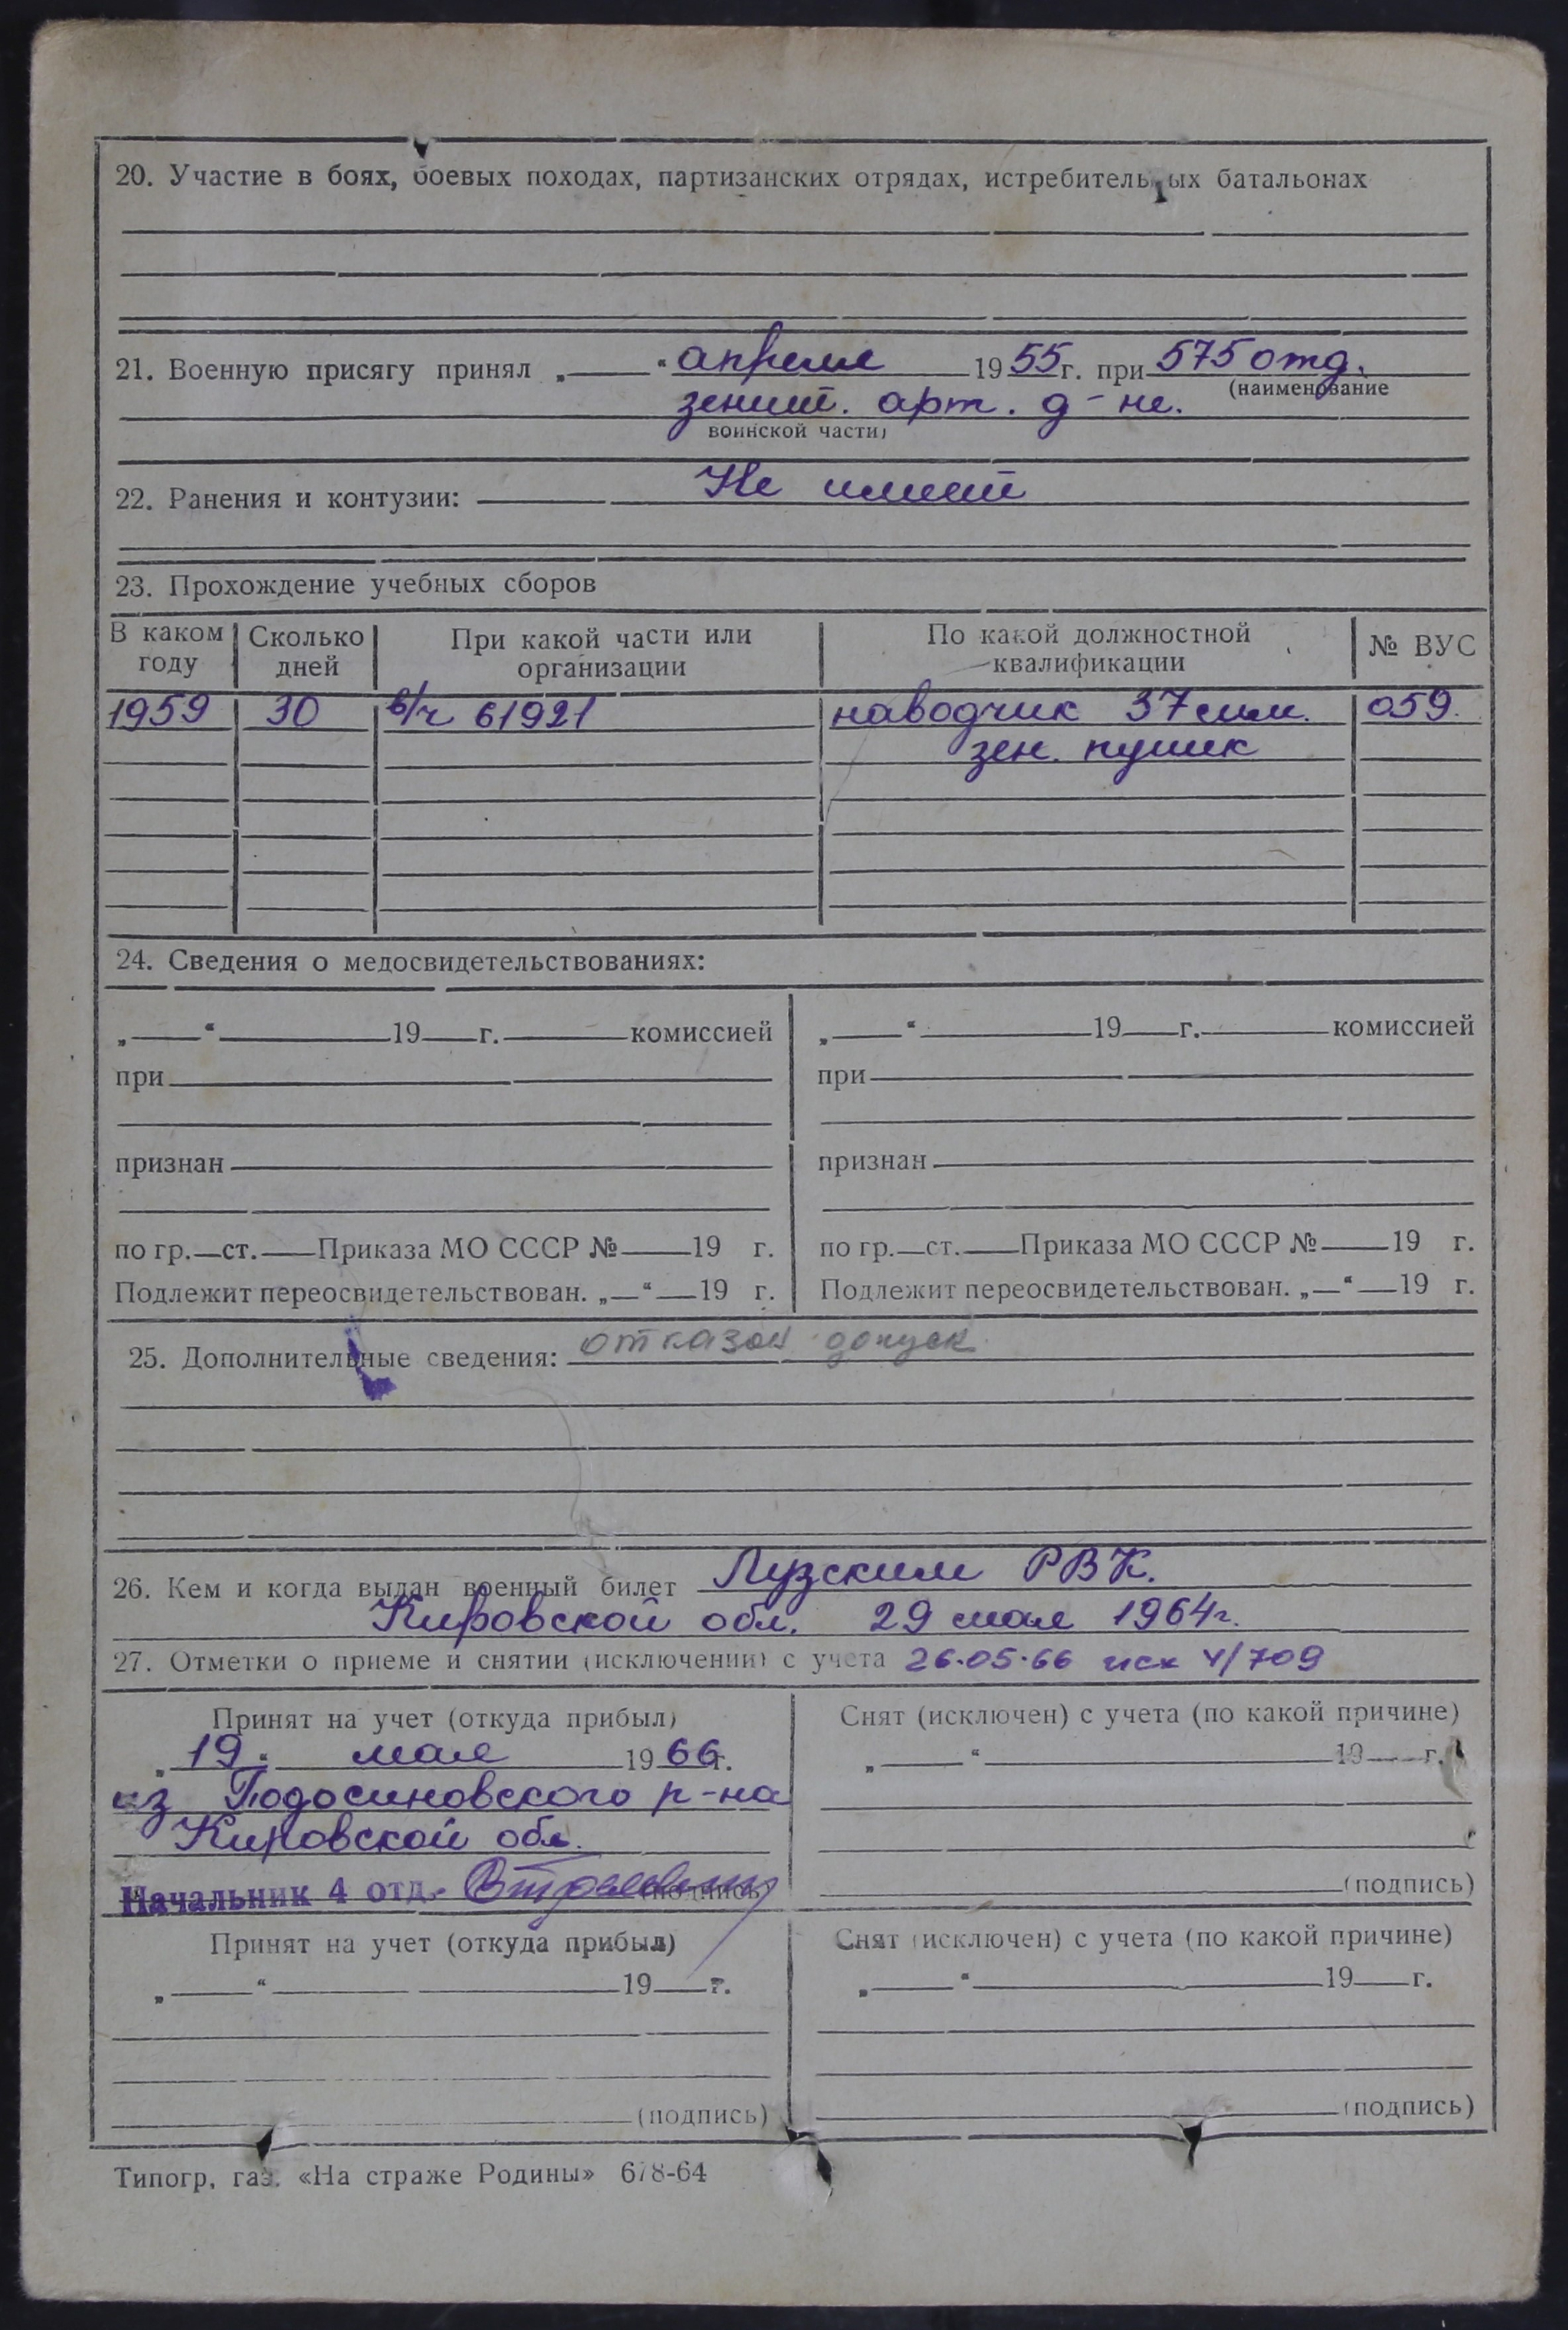 20. Участие в боях, боевых походах, партизанских отрядах, истребительных батальонах
21. Военную присягу принял „ “ апреля 1955г. при 575 отд.
(наименование
зенит. арт. д-не.
воинской части)
22. Ранения и контузии: Не имеет
23. Прохождение учебных сборов
В каком году Сколько дней При какой части или организации По какой должностной квалификации № ВУС
1959 30 в/ч 61921 наводчик 37 мм. 059.
зен. пушк
24. Сведения о медосвидетельствованиях:
„ “ 19 г. комиссией „ “ 19 г. комиссией
при при
признан признан
по гр. ст. Приказа МО СССР № 19 г. по гр. ст. Приказа МО СССР № 19 г.
Подлежит переосвидетельствован. „ “ 19 г. Подлежит переосвидетельствован. „ “ 19 г.
25. Дополнительные сведения: допуск
26. Кем и когда выдан военный билет Лузским РВК.
Кировской обл. 29 мая 1964г.
27. Отметки о приеме и снятии (исключении) с учета 26.05.66 исх 4/709
Принят на учет (откуда прибыл) Снят (исключен) с учета (по какой причине)
„19“ мая 1966г. „ “ 19 г.
из Подосиновского р-на
Кировской обл.
Начальник 4 отд. (подпись) (подпись)
Принят на учет (откуда прибыл) Снят (исключен) с учета (по какой причине)
„ “ 19 г. „ “ 19 г.
(подпись) (подпись)
Типогр, газ. «На страже Родины» 678-64